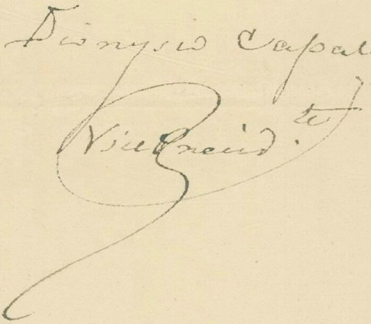 Dionysio Capal
Vice Presid.te